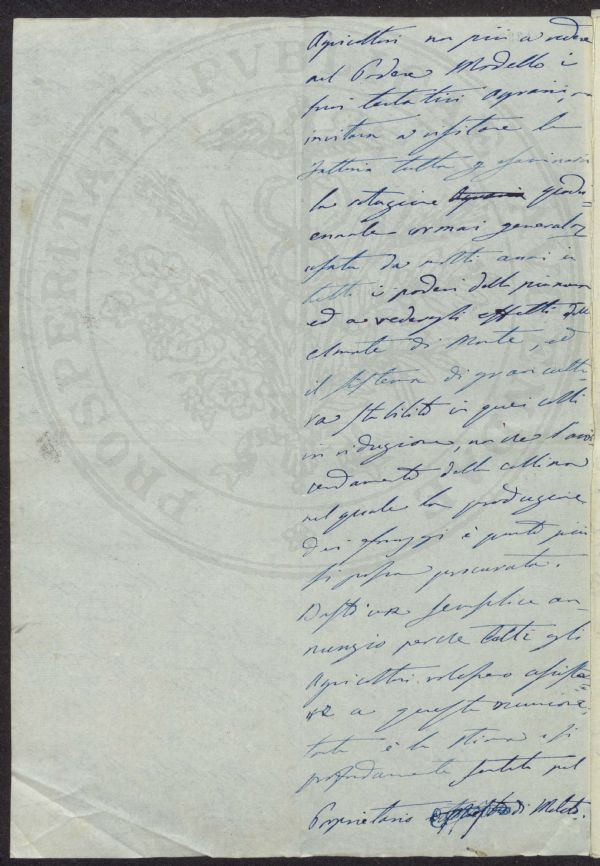 Agricoltori non più a vedere
nel Podere Modello i
suoi tentativi Agrarj, ma
invitava a visitare la
fattoria tutta
la rotazione Agraria quadri=
ennale ormai
usata da molti anni in
tutti i poderi della pianura
ed a vedere gli effetti delle
Colmate di Monte, ed
il sistema di gran cultu=
ra stabilito in quei colli
in riduzione, non che l'avvi
cendamento della collina
nel quale la produzione
dei foraggi è quanto più
si possa procurata.
Bastò un semplice an=
nunzio perche tutti gli
Agricoltori volessero assiste=
re a questa riunione,
tanta è la stima sì
profondamente sentita pel
Proprietario di Meleto.
PROSPERITATI PVBLICAE